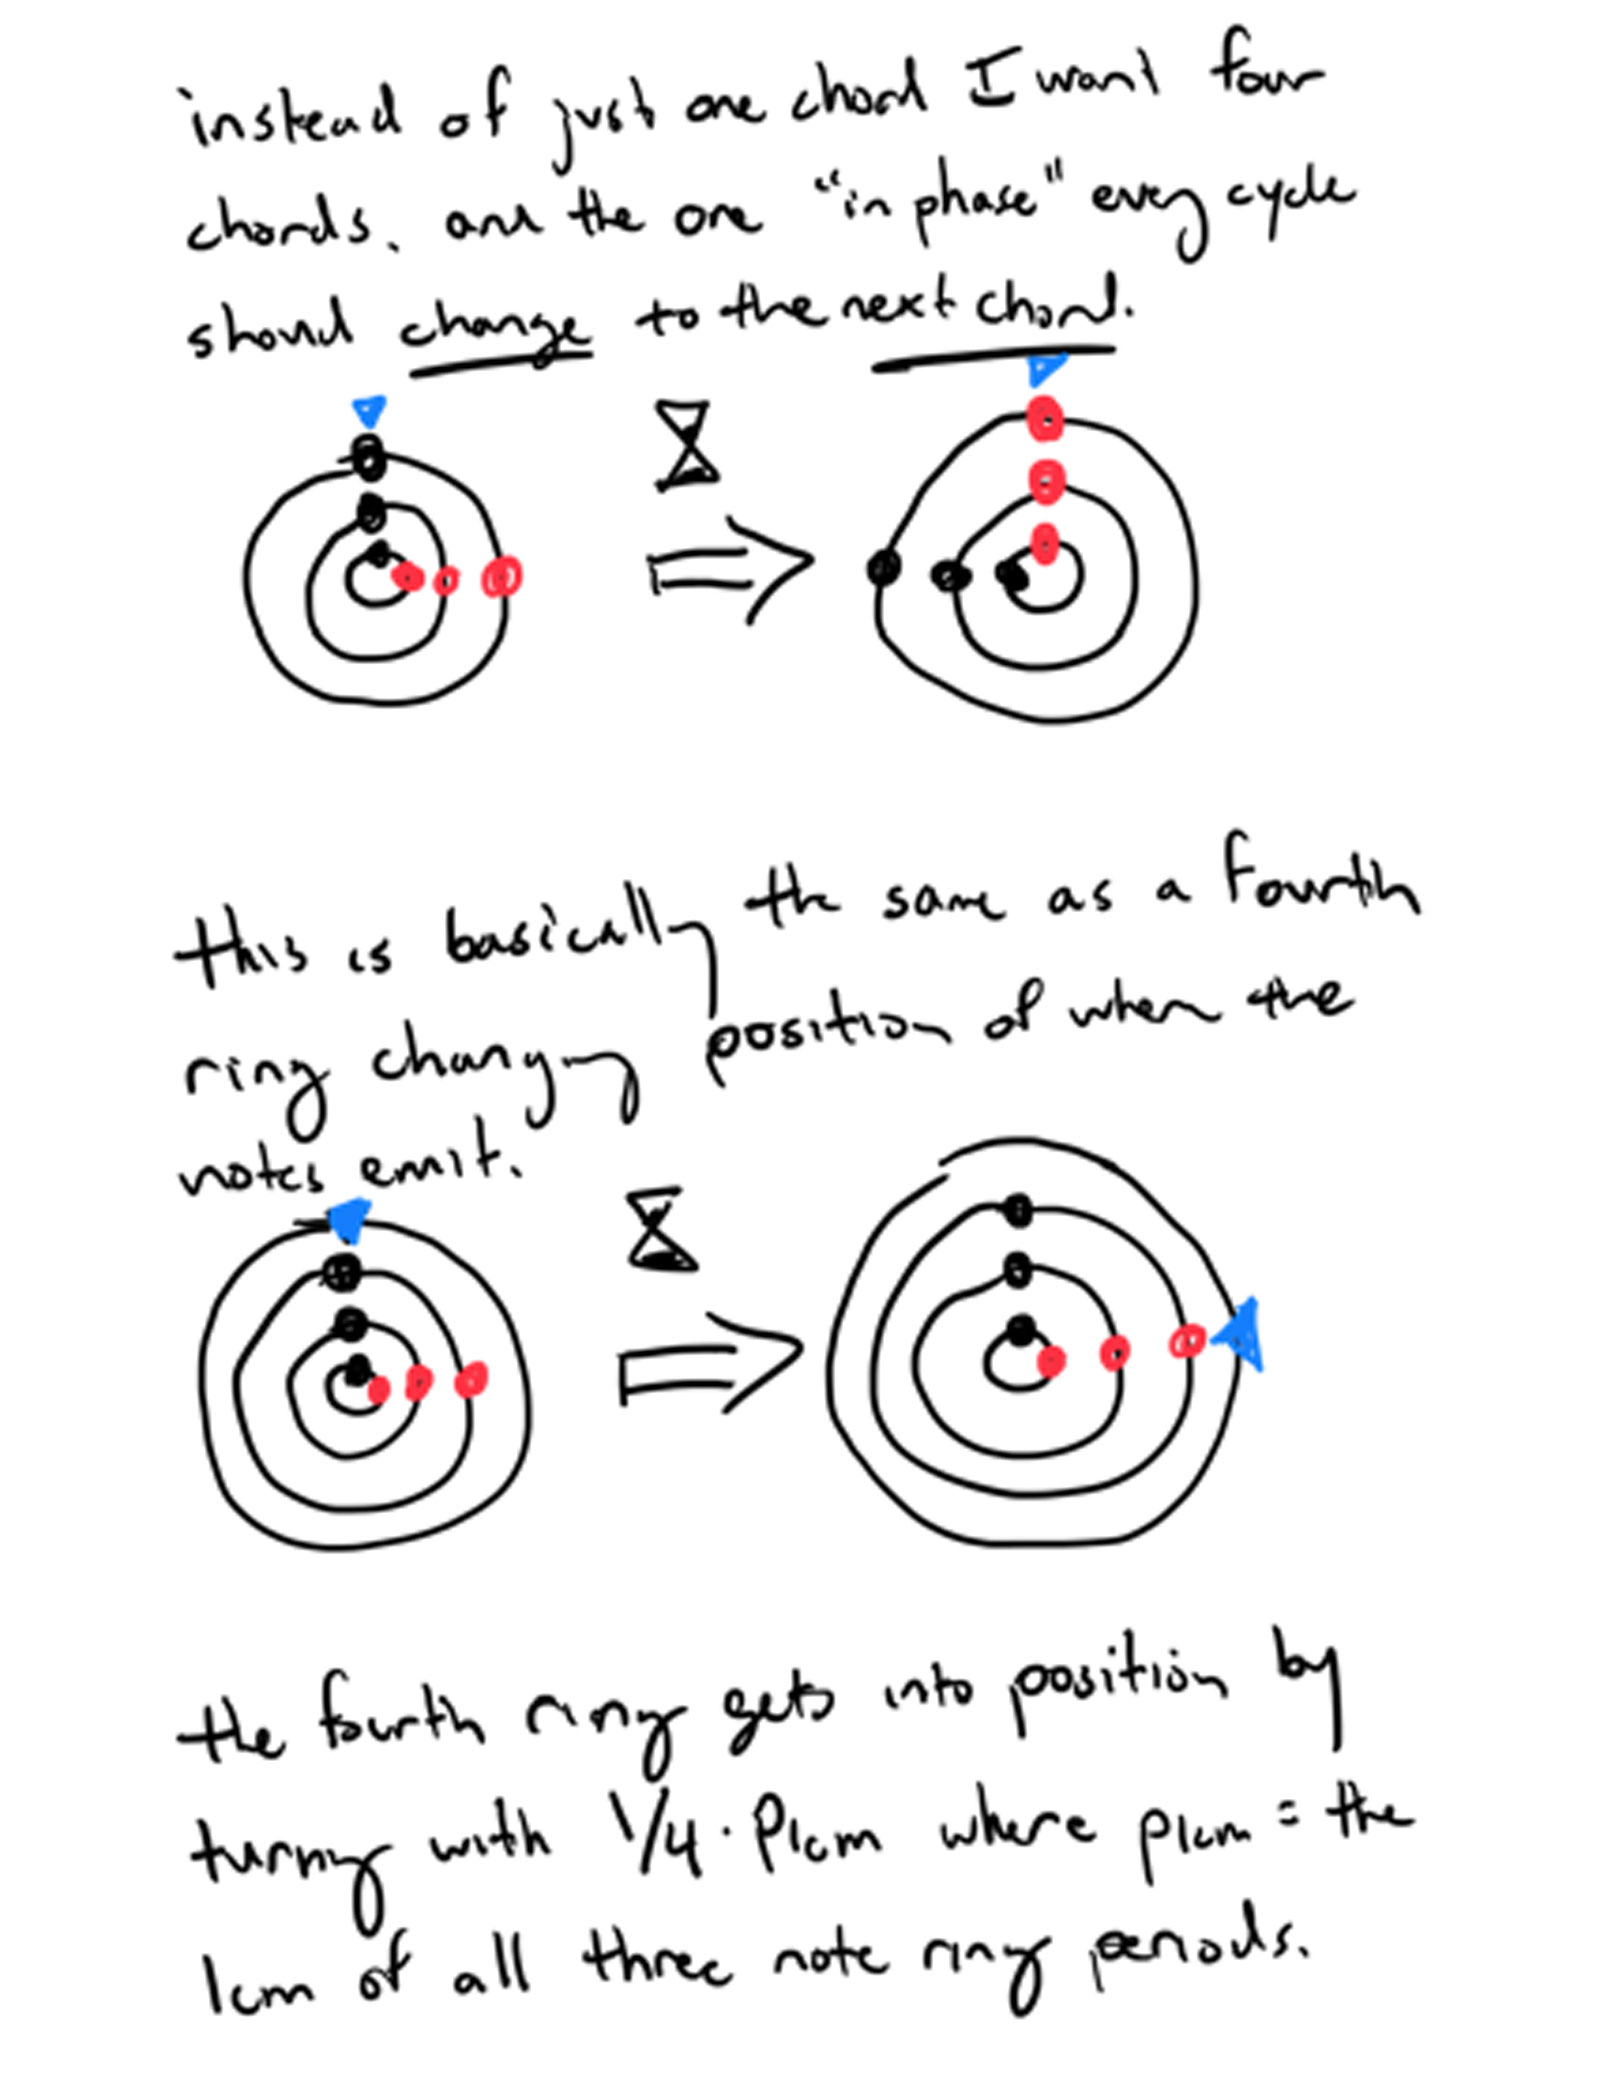 instead of just one chord I want four
chords. and the one "in phase" every cycle
should change to the next chord.
this is basically the same as a fourth
ring changing position of when the
notes emit.
the fourth ring gets into position by
turning with 1/4 · Plcm where plcm = the
lcm of all three note ring periods.